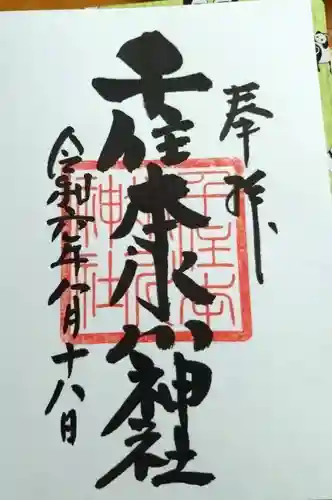 奉拝
千住本氷川神社
令和六年八月十八日
千住本
神社